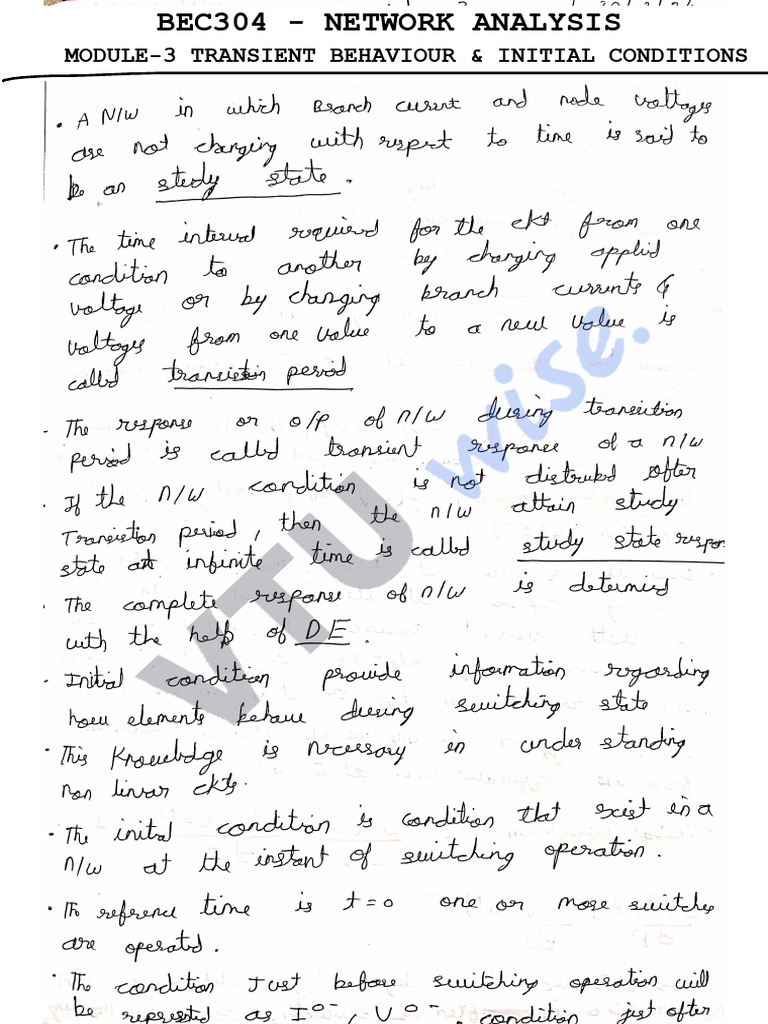 BEC304 - NETWORK ANALYSIS
MODULE-3 TRANSIENT BEHAVIOUR & INITIAL CONDITIONS
• A N/W in which Branch current and node voltages
are not changing with respect to time is said to
be an study state.
• The time interval required for the ckt from one
condition to another by changing applid
voltage or by changing branch currents &
voltages from one value to a new value is
called transistion period
- The response or o/p of n/w during transition
period is called transient response of a n/w
. If the n/w condition is not distrubed after
Transistion period, then the n/w attain study
state at infinite time is called study state respon
. The complete response of n/w is determined
with the help of DE.
- Initial condition provide information regarding
how elements behave during switching state
• This Knowledge is necessary in under standing
non linear ckts.
• The initial condition is condition that exist in a
n/w at the instant of switching operation.
• Th reference time is t=0 one or more switches
are operated.
• The condition Just before switching operation will
be represented as I0-, V0-, condition just after
VTU wise.